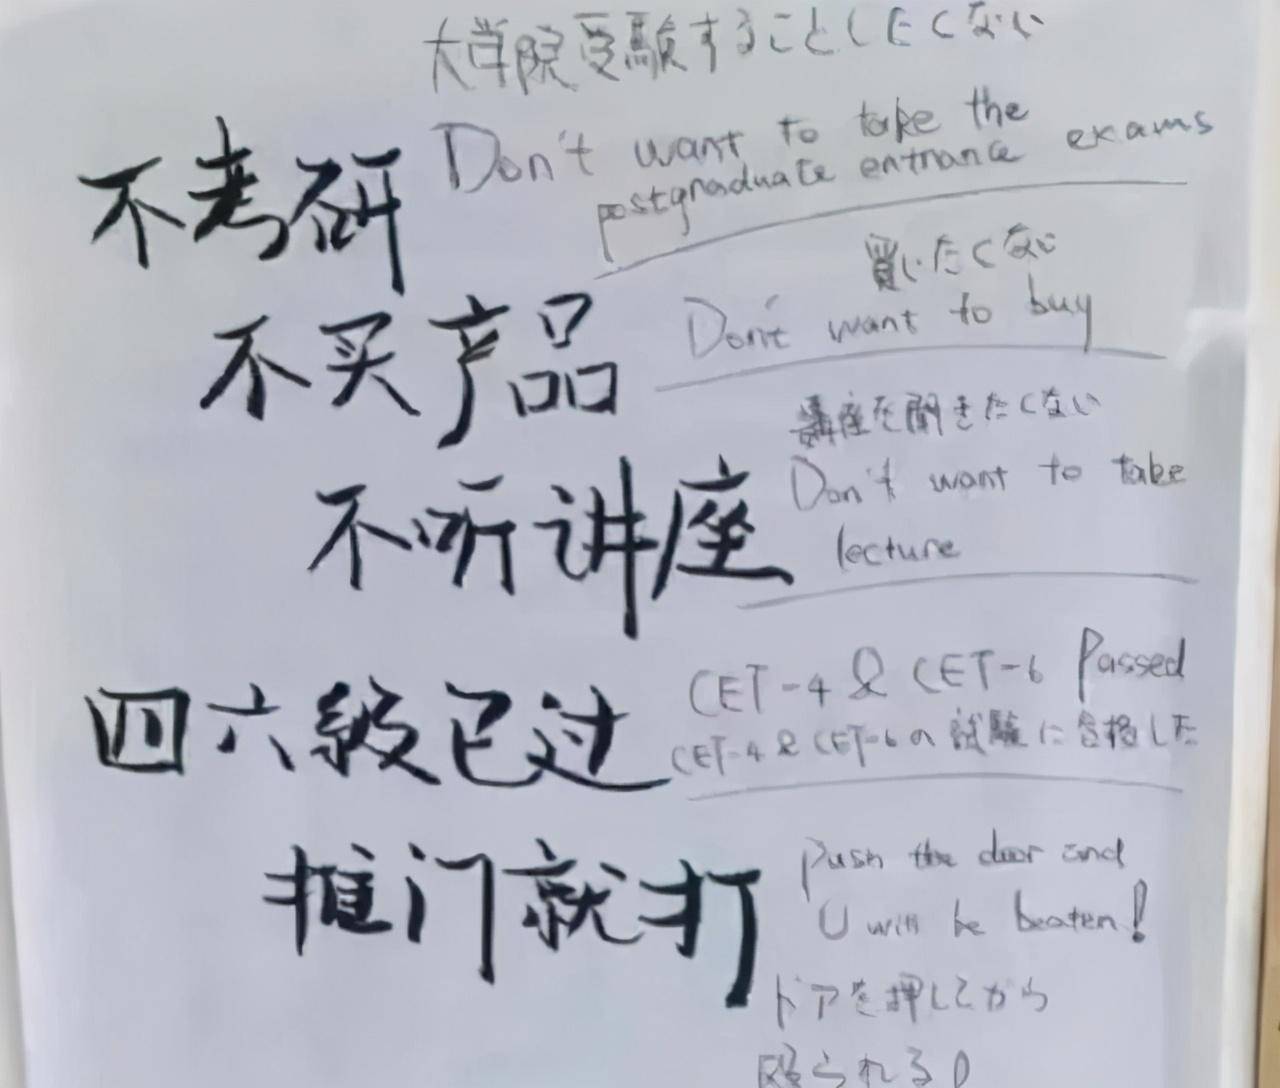 大学院受験することしたくない
不考研
Don't want to take the
postgraduate entrance exams
買いたくない
不买产品
Don't want to buy
講座を聞きたくない
不听讲座
Don't want to take
lecture
CET-4 & CET-6 Passed
四六级已过
CET-4 & CET-6の試験に合格した
Push the door and
推门就打
U will be beaten!
ドアを押してから
殴られる